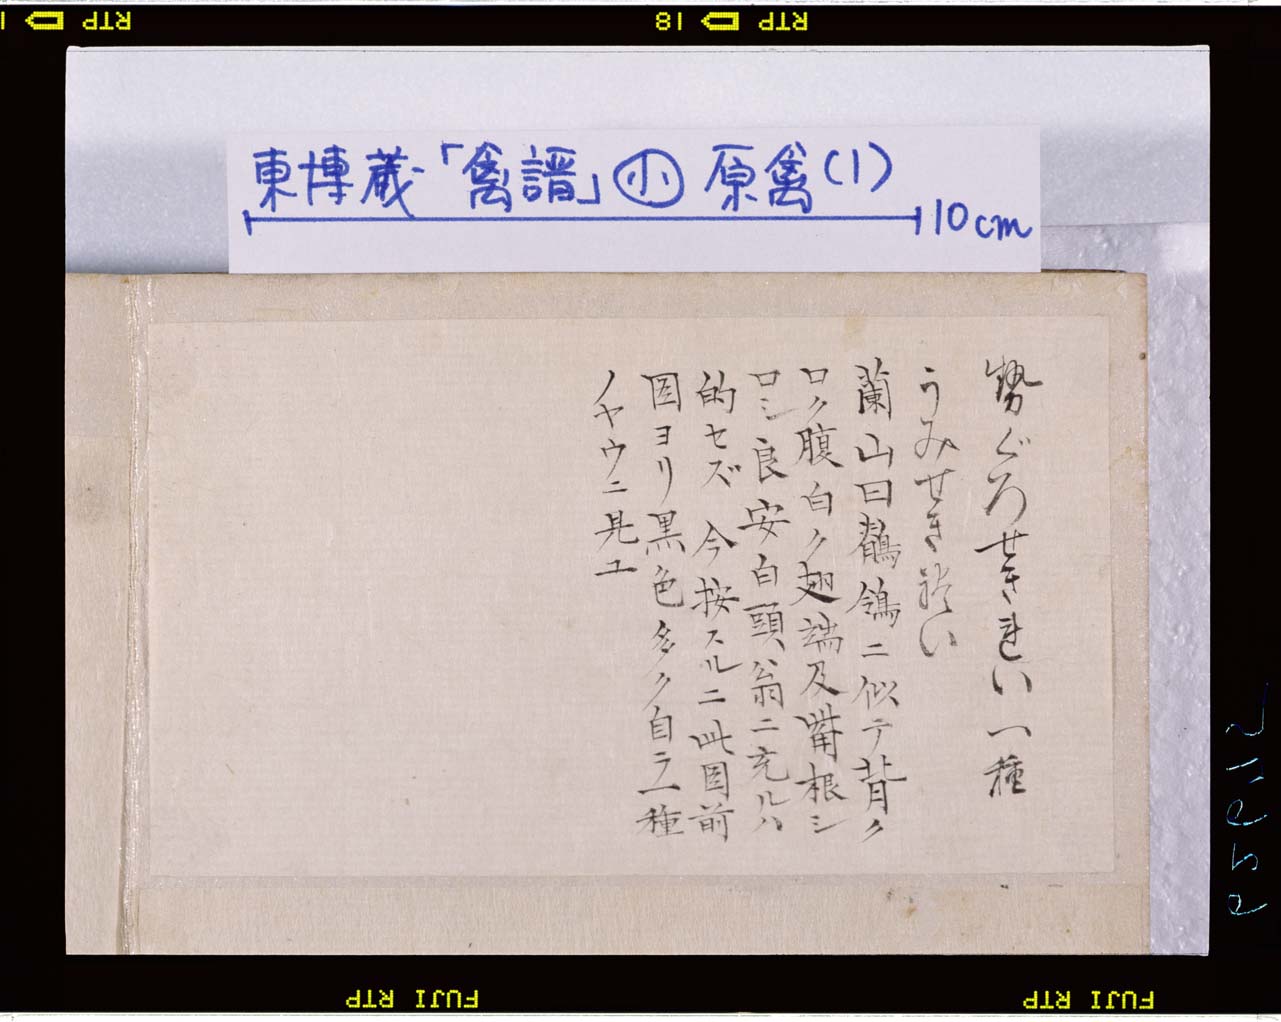 RTP
18
RTP
東博蔵「禽譜」小 原禽(1)
10cm
勢ぐろせきれい一種
うみせきれい
蘭山曰鶺鴒ニ似テ背ク
ロク腹白ク翅端及觜根シ
ロシ良安白頭翁ニ充ルハ
的セズ 今按スルニ此圖前
圖ヨリ黒色多ク自ラ一種
ノヤウニ見ユ
FUJI RTP
FUJI RTP